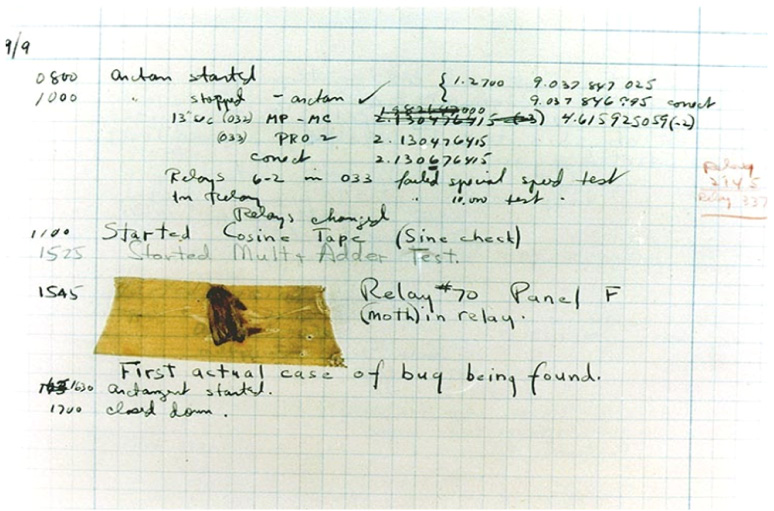 9/9
0800 arctan started { 1.2700 9.037 847 025
1000 " stopped - arctan ✓ 9.037 846 995 correct
13"uc (032) MP - MC 2.130476415 4.615925059(-2)
(033) PRO 2 2.130476415
conect 2.130676415
Relays 6-2 in 033 failed special speed test
In Relay " 10.000 test .
Relays changed
1100 Started Cosine Tape (Sine check)
1525 Started Mult+Adder Test.
1545 Relay #70 Panel F
(moth) in relay.
First actual case of bug being found.
1630 arctangent started.
1700 closed down.
Relay
2145
Relay 337